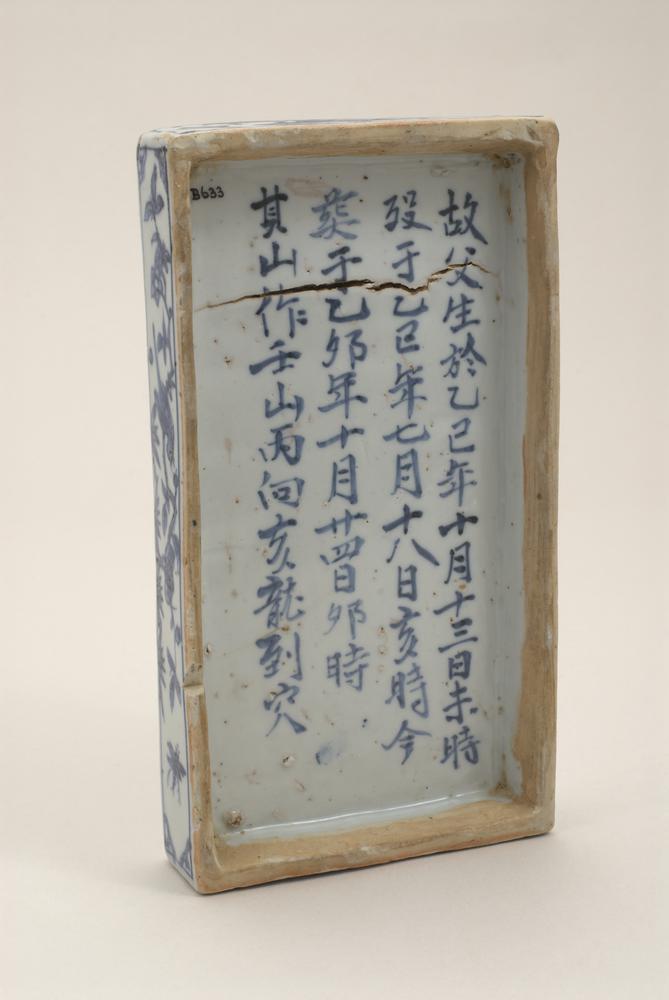 故父生於乙巳年十月十三日未時
歿于乙巳年七月十八日亥時今
葬于乙夘年十月廿四日夘時
其山作壬山丙向亥龍到穴
B633